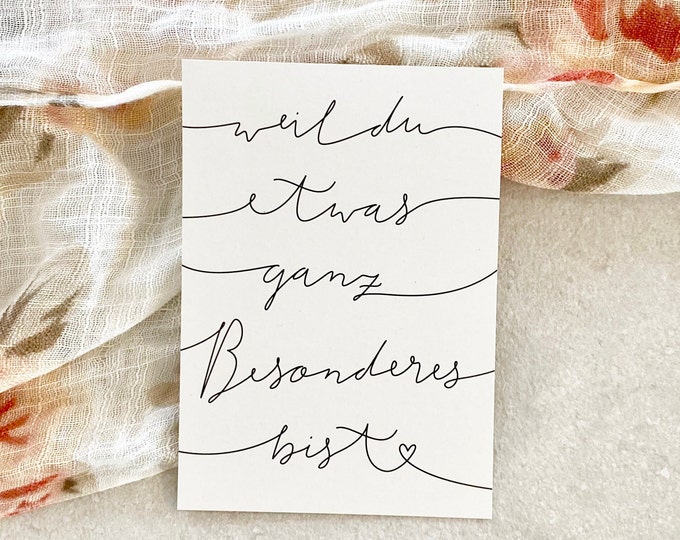 weil du
etwas
ganz
Besonderes
bist